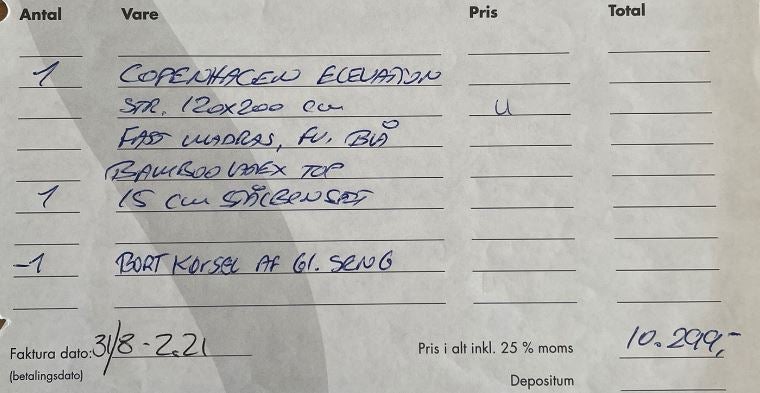 Antal Vare Pris Total
1 COPENHAGEN ELEVATION
STR. 120x200 cm U
FAST MADRAS, FV. BLÅ
BAMBOO LATEX TOP
1 15 cm STÅLBENSÆT
-1 BORTKØRSEL AF Gl. SENG
Faktura dato: 31/8-2.21 Pris i alt inkl. 25 % moms 10.299,-
(betalingsdato)
Depositum